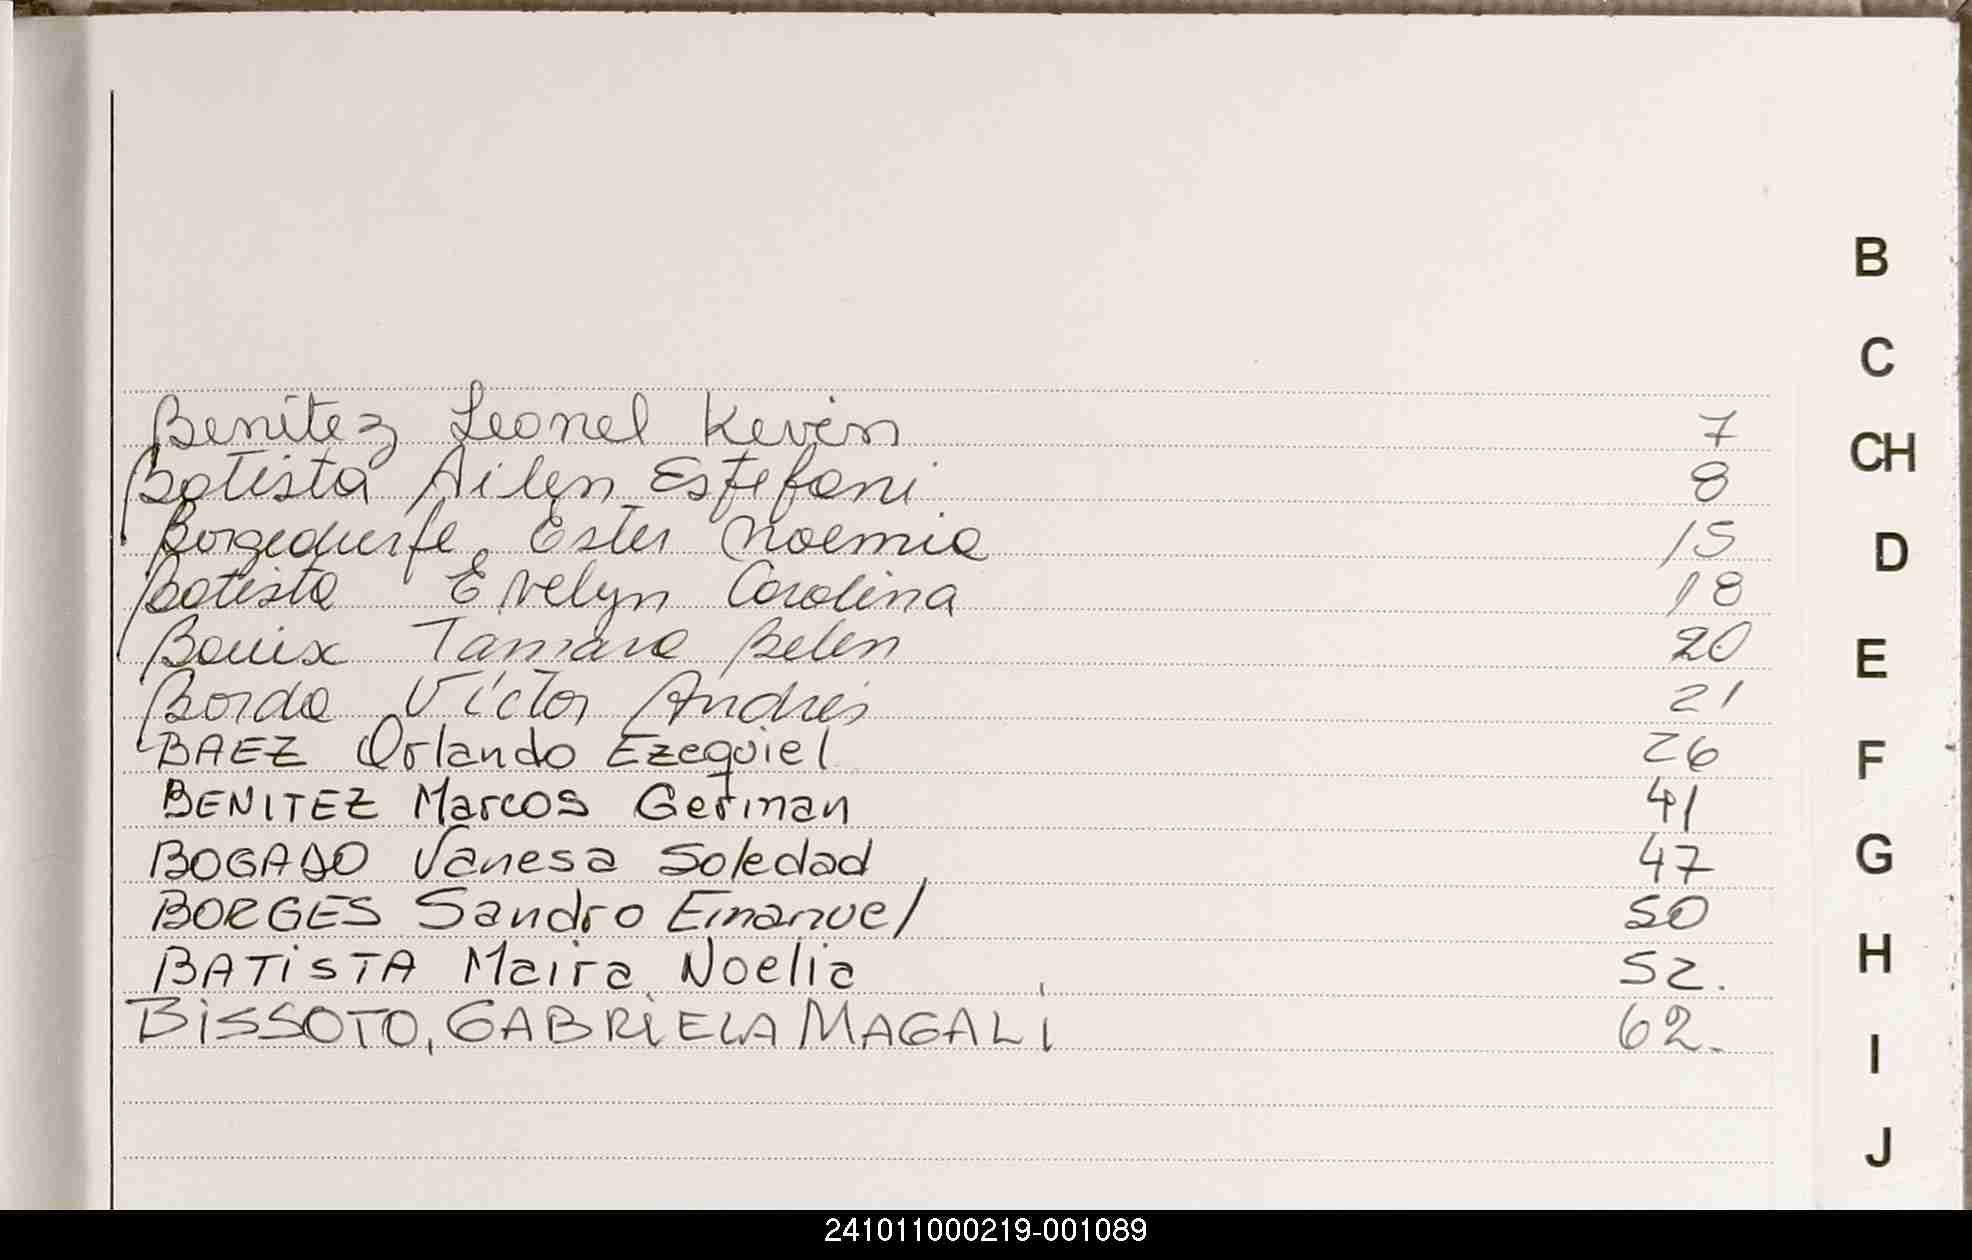 B
C
CH
D
E
F
G
H
I
J
Benítez Leonel Kevin 7
Batista Ailen Estefani 8
Ester Noemia 15
Batista Evelyn Carolina 18
Tamara Belen 20
Borda Víctor Andrés 21
BAEZ Orlando Ezequiel 26
BENITEZ Marcos German 41
BOGADO Vanesa Soledad 47
BORGES Sandro Emanuel 50
BATISTA Maira Noelia 52.
BISSOTO, GABRIELA MAGALI 62.
241011000219-001089